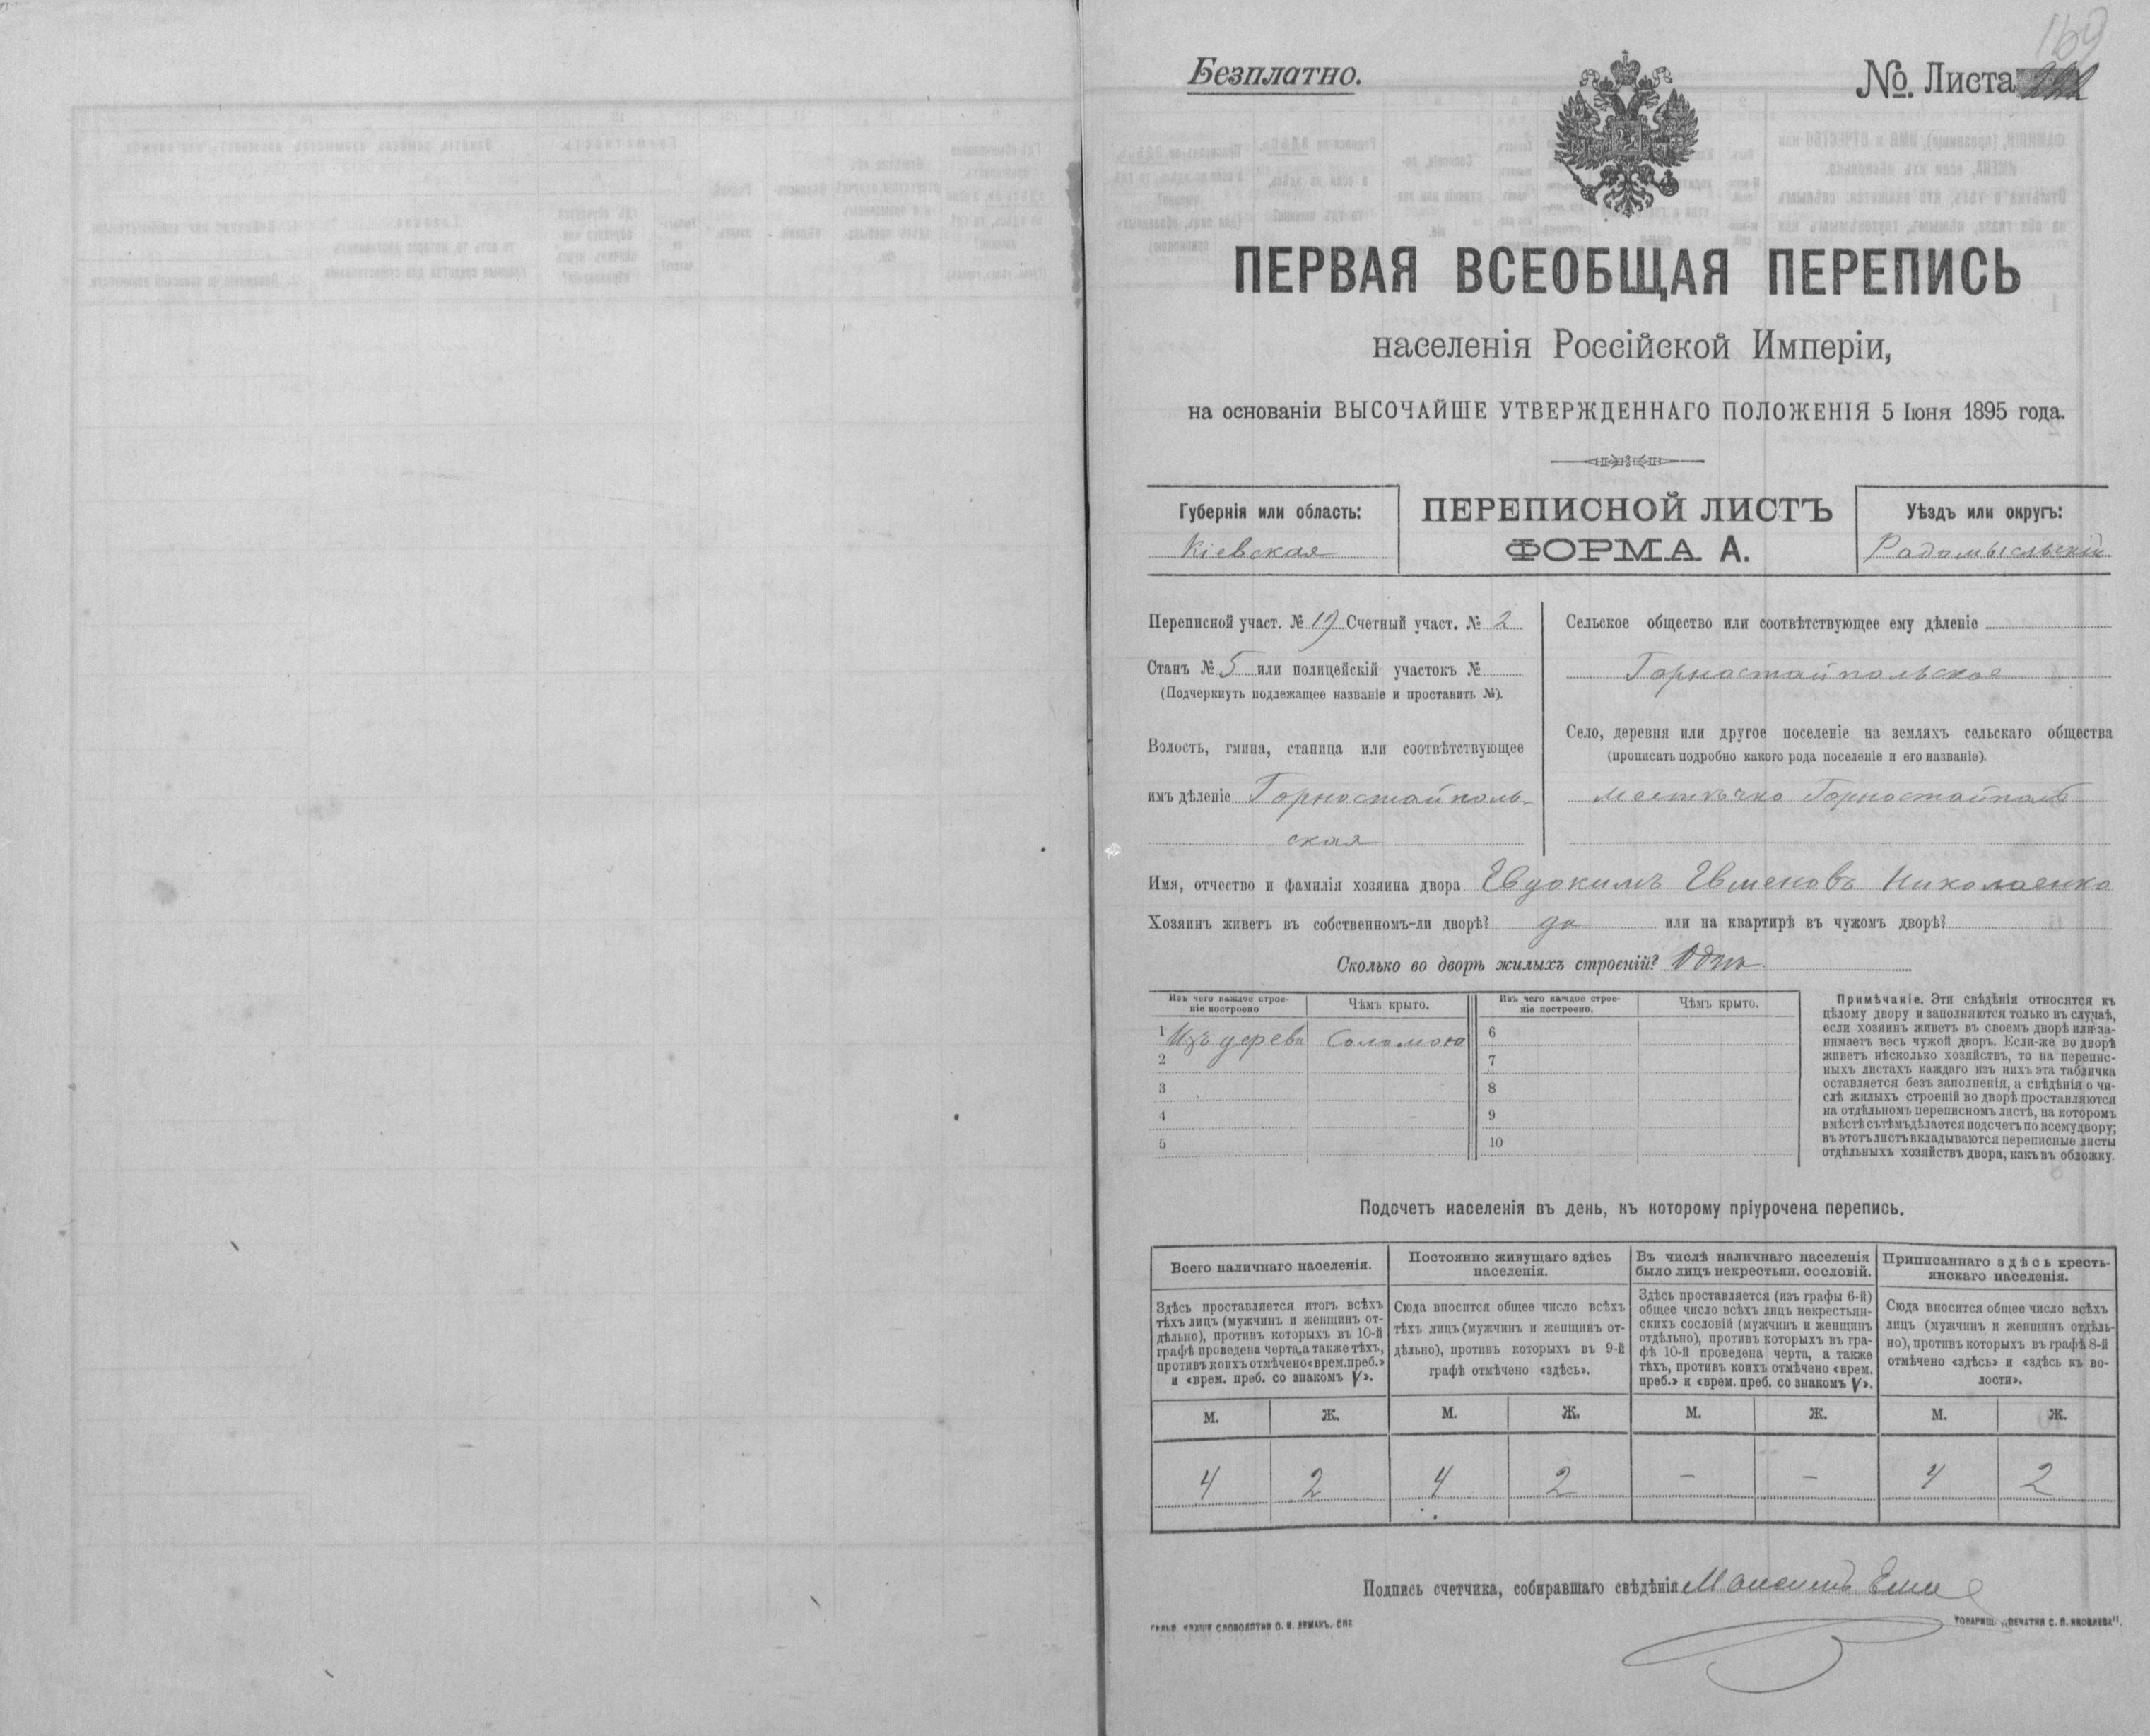 169
Безплатно.
№. Листа 222
ПЕРВАЯ ВСЕОБЩАЯ ПЕРЕПИСЬ
населенія Россійской Имперіи,
на основаніи ВЫСОЧАЙШЕ УТВЕРЖДЕННАГО ПОЛОЖЕНІЯ 5 Іюня 1895 года.
Губернія или область:
Кіевская
ПЕРЕПИСНОЙ ЛИСТЪ
ФОРМА А.
Уѣздъ или округъ:
Радомысльскій
Переписной участ. № 19 Счетный участ. № 2
Станъ № 5 или полицейскій участокъ №
(Подчеркнуть подлежащее названіе и проставить №).
Волость, гмина, станица или соотвѣтствующее
имъ дѣленіе Горностайполь-
ская
Сельское общество или соотвѣтствующее ему дѣленіе
Горностайпольское
Село, деревня или другое поселеніе на земляхъ сельскаго общества
(прописать подробно какого рода поселеніе и его названіе).
местечко Горностайполь
Имя, отчество и фамилія хозяина двора Евдокимъ Евменовъ Николаенко
Хозяинъ живетъ въ собственномъ-ли дворѣ? да или на квартирѣ въ чужомъ дворѣ?
Сколько во дворѣ жилыхъ строеній?
Изъ чего каждое строе-
ніе построено
Чѣмъ крыто.
1 Изъ дерева Соломою
2
3
4
5
Изъ чего каждое строе-
ніе построено.
Чѣмъ крыто.
6
7
8
9
10
Примѣчаніе. Эти свѣдѣнія относятся къ
цѣлому двору и заполняются только въ случаѣ,
если хозяинъ живетъ въ своемъ дворѣ или за-
нимаетъ весь чужой дворъ. Если-же во дворѣ
живетъ нѣсколько хозяйствъ, то на перепис-
ныхъ листахъ каждаго изъ нихъ эта табличка
оставляется безъ заполненія, а свѣдѣнія о чи-
слѣ жилыхъ строеній во дворѣ проставляются
на отдѣльномъ переписномъ листѣ, на которомъ
вмѣстѣ съ тѣмъ дѣлается подсчетъ по всему двору;
въ этотъ листъ вкладываются переписные листы
отдѣльныхъ хозяйствъ двора, какъ въ обложку.
Подсчетъ населенія въ день, къ которому пріурочена перепись.
Всего наличнаго населенія.
Здѣсь проставляется итогъ всѣхъ
тѣхъ лицъ (мужчинъ и женщинъ от-
дѣльно), противъ которыхъ въ 10-й
графѣ проведена черта, а также тѣхъ,
противъ коихъ отмѣчено «врем. преб.»
и «врем. преб. со знакомъ V».
Постоянно живущаго здѣсь
населенія.
Сюда вносится общее число всѣхъ
тѣхъ лицъ (мужчинъ и женщинъ от-
дѣльно), противъ которыхъ въ 9-й
графѣ отмѣчено «здѣсь».
Въ числѣ наличнаго населенія
было лицъ некрестьян. сословій.
Здѣсь проставляется (изъ графы 6-й)
общее число всѣхъ лицъ некрестьян-
скихъ сословій (мужчинъ и женщинъ
отдѣльно), противъ которыхъ въ гра-
фѣ 10-й проведена черта, а также
тѣхъ, противъ коихъ отмѣчено «врем.
преб.» и «врем. преб. со знакомъ V».
Приписаннаго здѣсь кресть-
янскаго населенія.
Сюда вносится общее число всѣхъ
лицъ (мужчинъ и женщинъ отдѣль-
но), противъ которыхъ въ графѣ 8-й
отмѣчено «здѣсь» и «здѣсь къ во-
лости».
М. Ж. М. Ж. М. Ж. М. Ж.
4 2 4 2 – – 4 2
Подпись счетчика, собиравшаго свѣдѣнія
СЛОВОЛИТНЯ О. И. ЛЕМАНЪ. СПБ
ТОВАРИЩ. „ПЕЧАТНЯ С. П. ЯКОВЛЕВА".